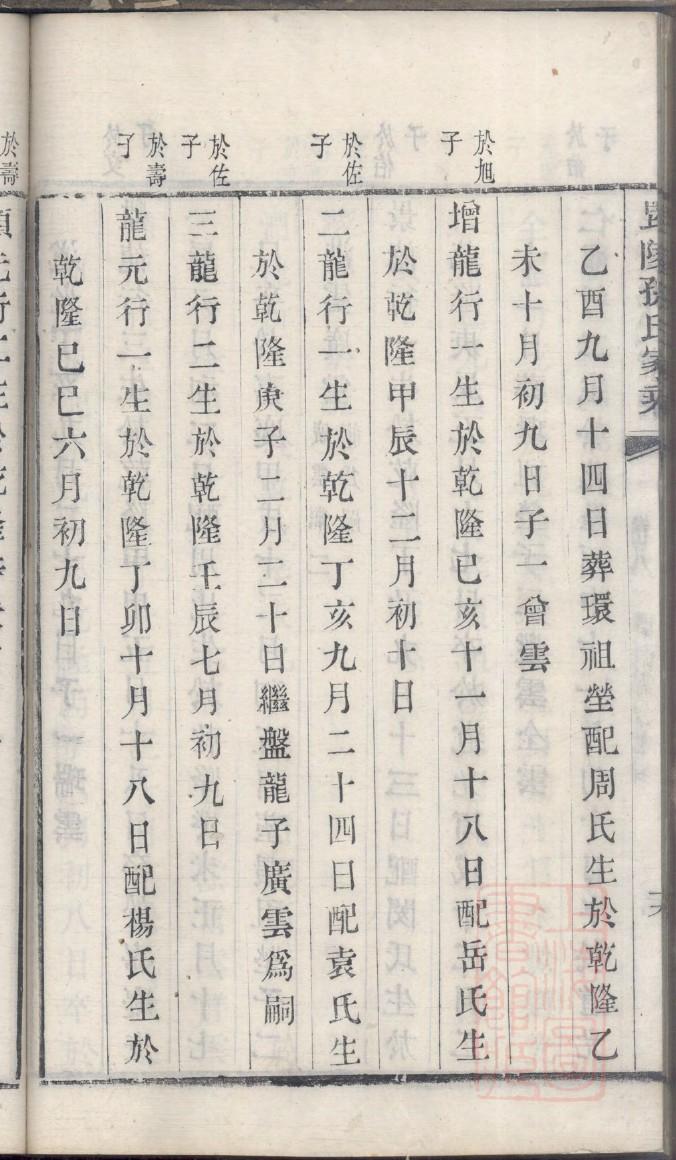 氏家乘
乙酉九月十四日葬環祖塋配周氏生於乾隆乙
未十月初九日子一曾雲
於旭子
增龍行一生於乾隆己亥十一月十八日配岳氏生
於乾隆甲辰十二月初十日
於佐子
二龍行一生於乾隆丁亥九月二十四日配袁氏生
於乾隆庚子二月二十日繼盤龍子廣雲爲嗣
於佐子
三龍行二生於乾隆壬辰七月初九日
於壽子
龍元行一生於乾隆丁卯十月十八日配楊氏生於
乾隆己巳六月初九日
於壽